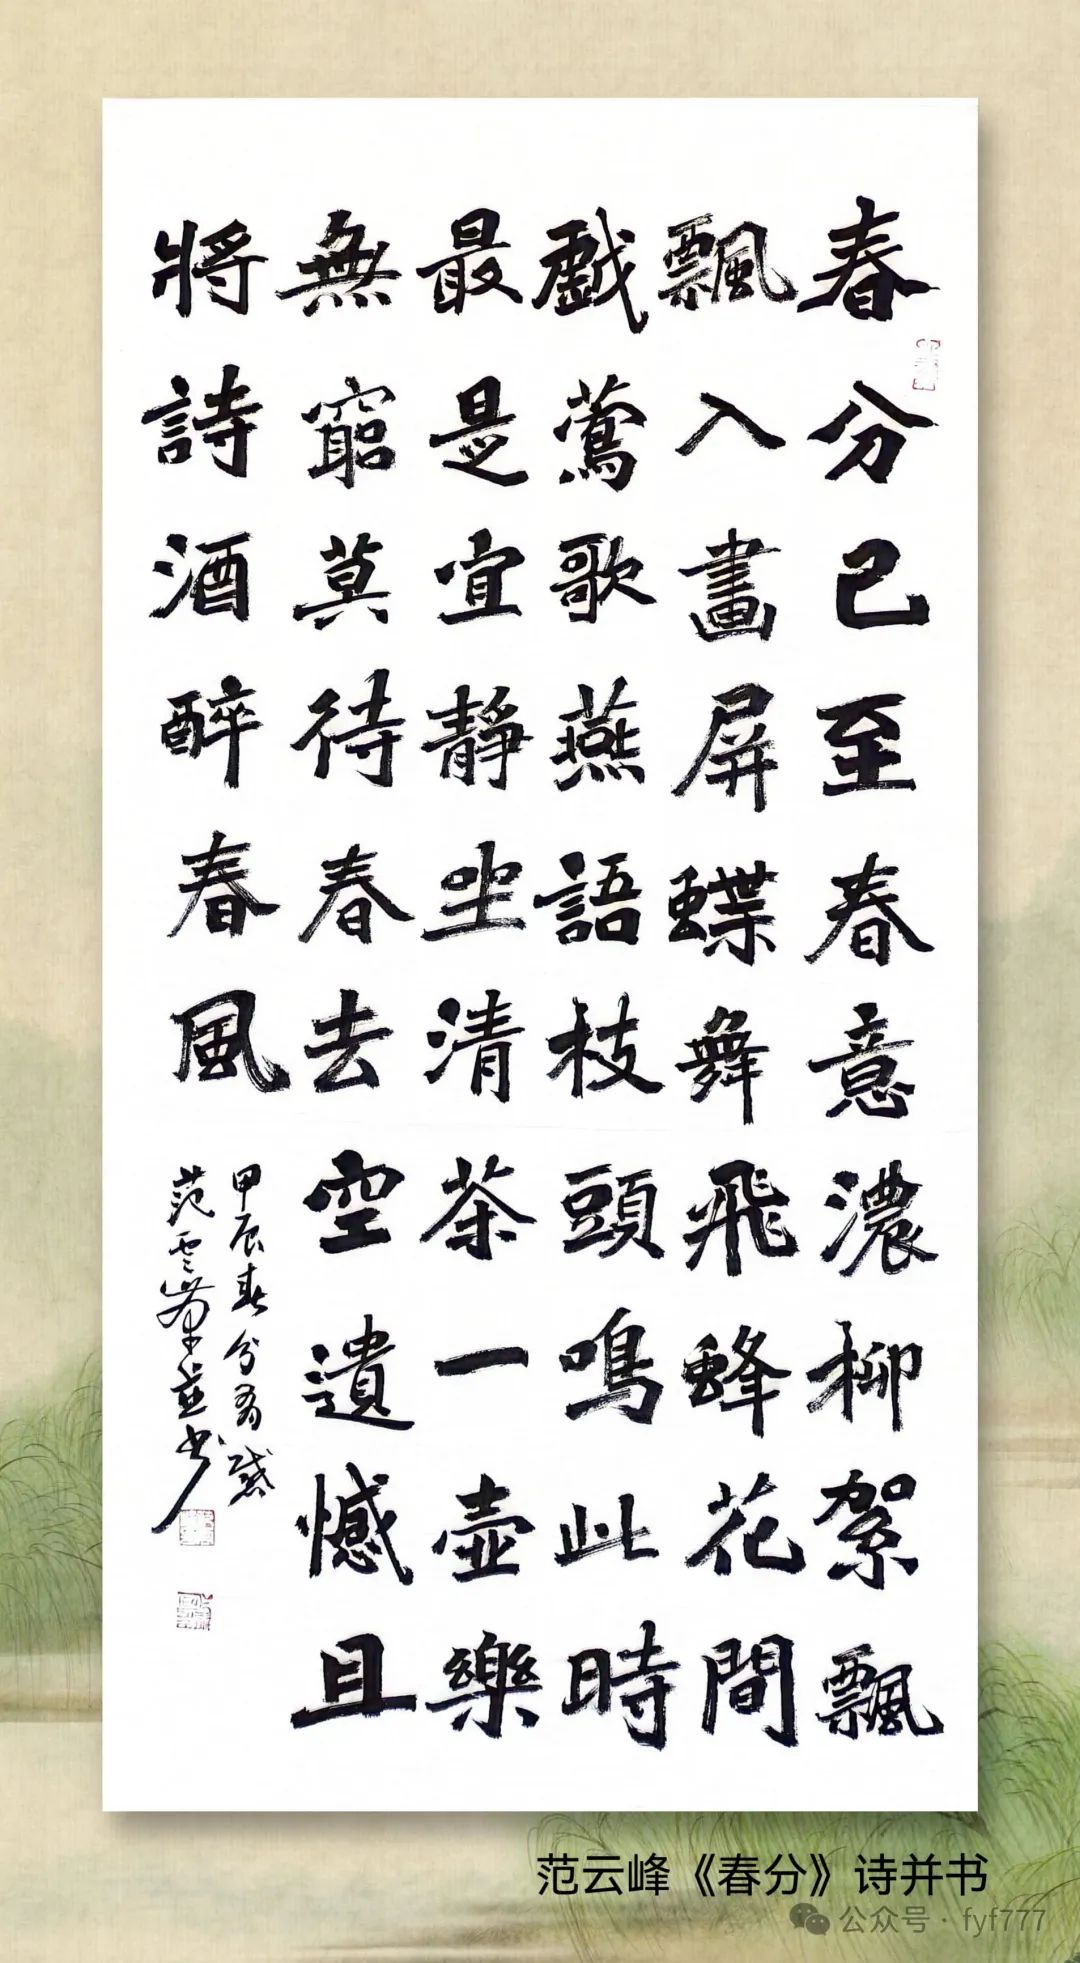 春分已至春意濃柳絮飄
飄入畫屏蝶舞飛蜂花間
戲鶯歌燕語枝頭鳴此時
最是宜靜坐清茶一壺樂
無窮莫待春去空遺憾且
將詩酒醉春風
甲辰春分有感
范云峰並书
范云峰《春分》诗并书
公众号·fyf777